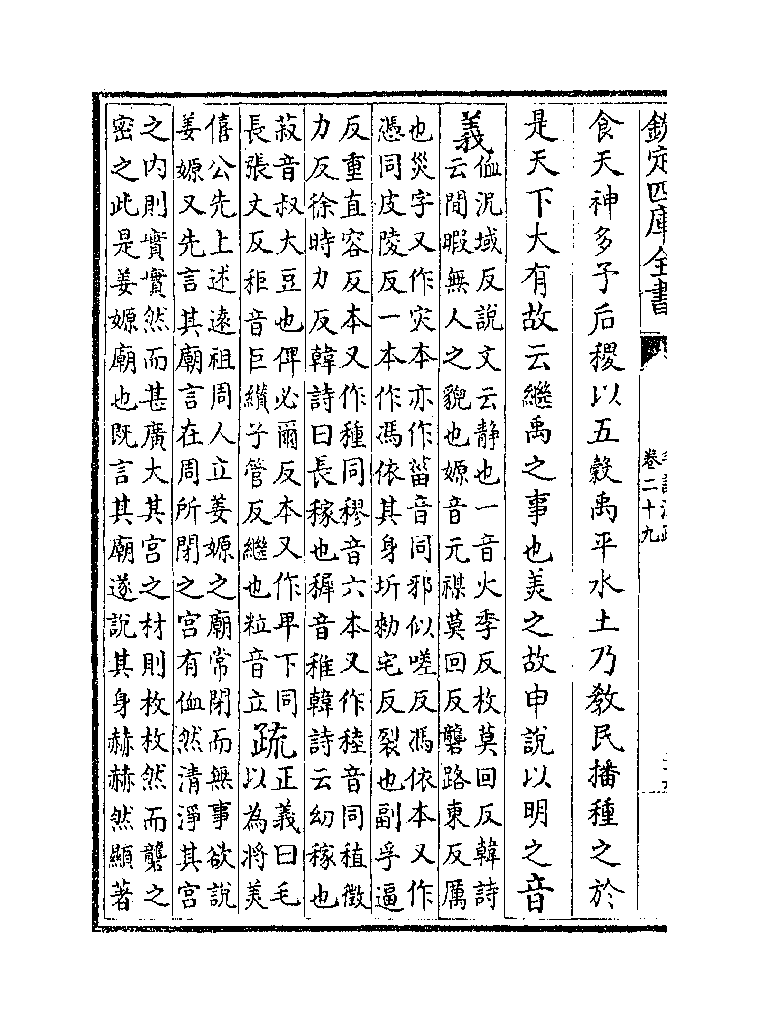 欽定四庫全書
卷二十九
食天神多予后稷以五穀禹平水土乃教民播種之於
是天下大有故云繼禹之事也美之故申說以明之音
義侐況域反說文云靜也一音火季反枚莫回反韓詩
云閒暇無人之貌也嫄音元禖莫回反礱路東反厲
也災字又作灾本亦作菑音同邪似嗟反馮依本又作
憑同皮陵反一本作馮依其身坼勑宅反裂也副孚逼
反重直容反本又作種同穋音六本又作稑音同稙徵
力反徐時力反韓詩曰長稼也穉音稚韓詩云幼稼也
菽音叔大豆也俾必爾反本又作卑下同
長張丈反秬音巨纘子管反繼也粒音立
疏正義曰毛
以為將美
僖公先上述遠祖周人立姜嫄之廟常閉而無事欲說
姜嫄又先言其廟言在周所閉之宮有侐然清淨其宮
之內則實實然而甚廣大其宮之材則枚枚然而礱之
密之此是姜嫄廟也既言其廟遂說其身赫赫然顯著